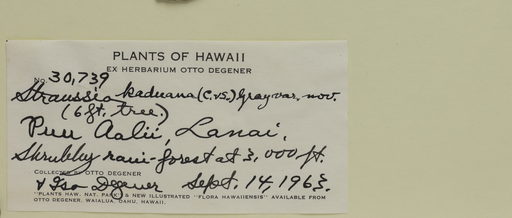 PLANTS OF HAWAII
EX HERBARIUM OTTO DEGENER
No. 30,739
Straussia kaduana (C.&S.) Gray var. nov.
(6 ft. tree.)
Puu Aalii, Lanai.
Shrubby rain-forest at 3,000 ft.
COLLECTED BY OTTO DEGENER
& Isa Degener Sept. 14, 1963.
"PLANTS HAW. NAT. PARK" & NEW ILLUSTRATED "FLORA HAWAIIENSIS" AVAILABLE FROM
OTTO DEGENER, WAIALUA, OAHU, HAWAII.